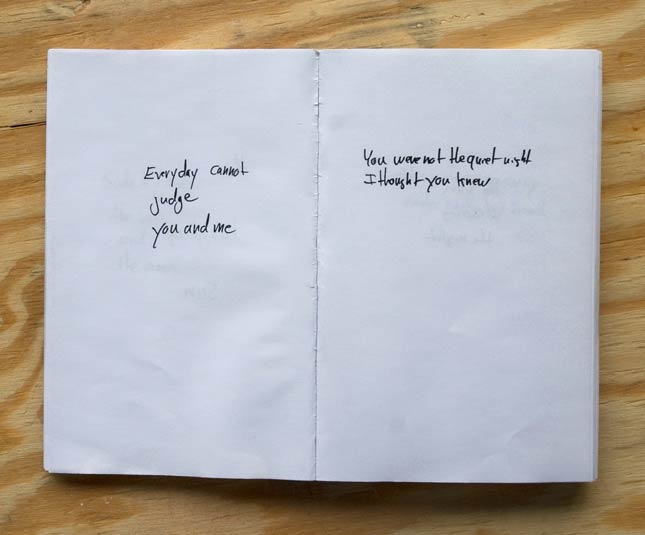 Everyday cannot
judge
you and me
You were not the quiet night
I thought you knew